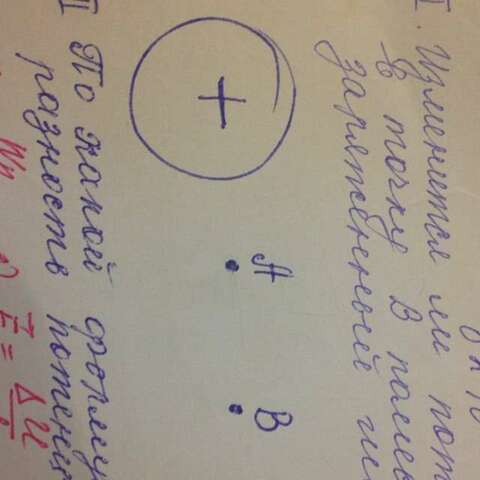 I. Изменится ли пот
в точку В помес
заряженный ш
+
А
В
II По какой форму
разность потенц
E = ΔU